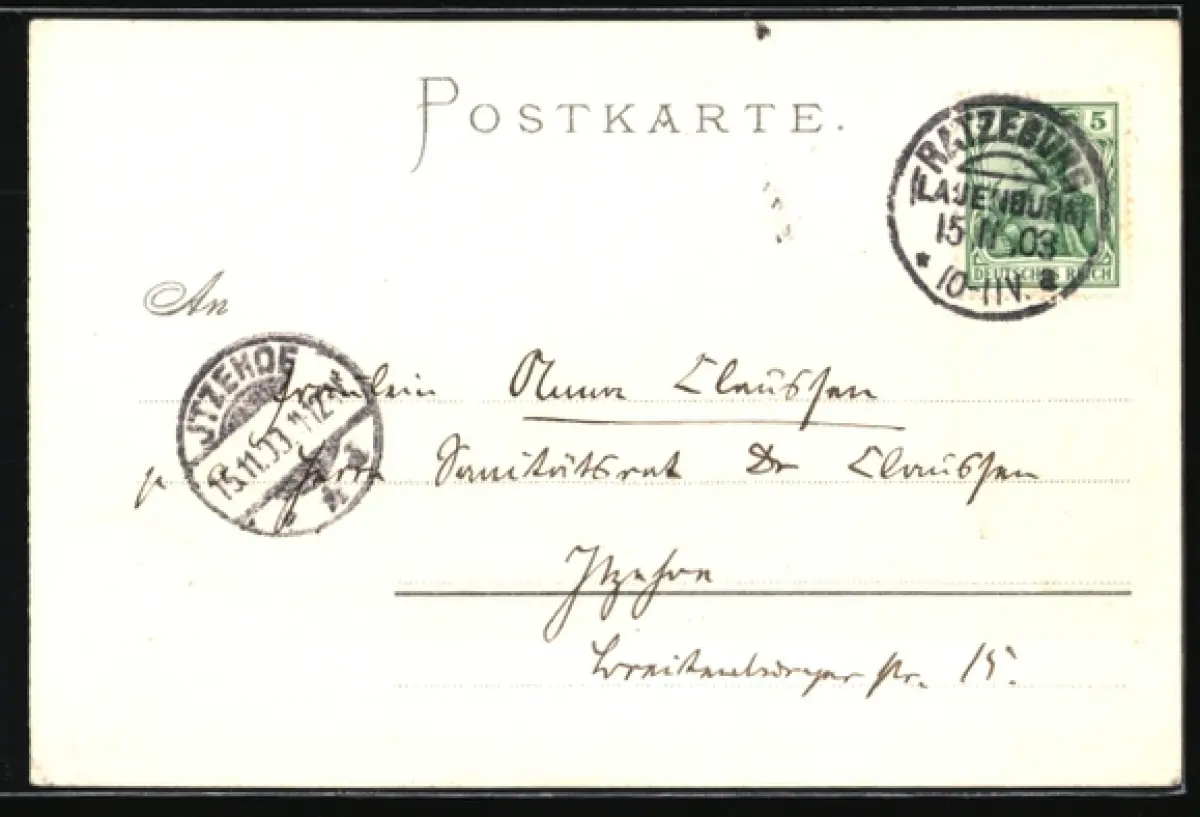 POSTKARTE.
5
RATZEBURG
(LAUENBURG)
15.11.03
* 10-11V. a
DEUTSCHES REICH
An
ITZEHOE
15.11.03. 11-12V.
Fräulein Anna Claussen
Herrn Sanitätsrat Dr Claussen
Itzehoe
Breitenburger str. 15.